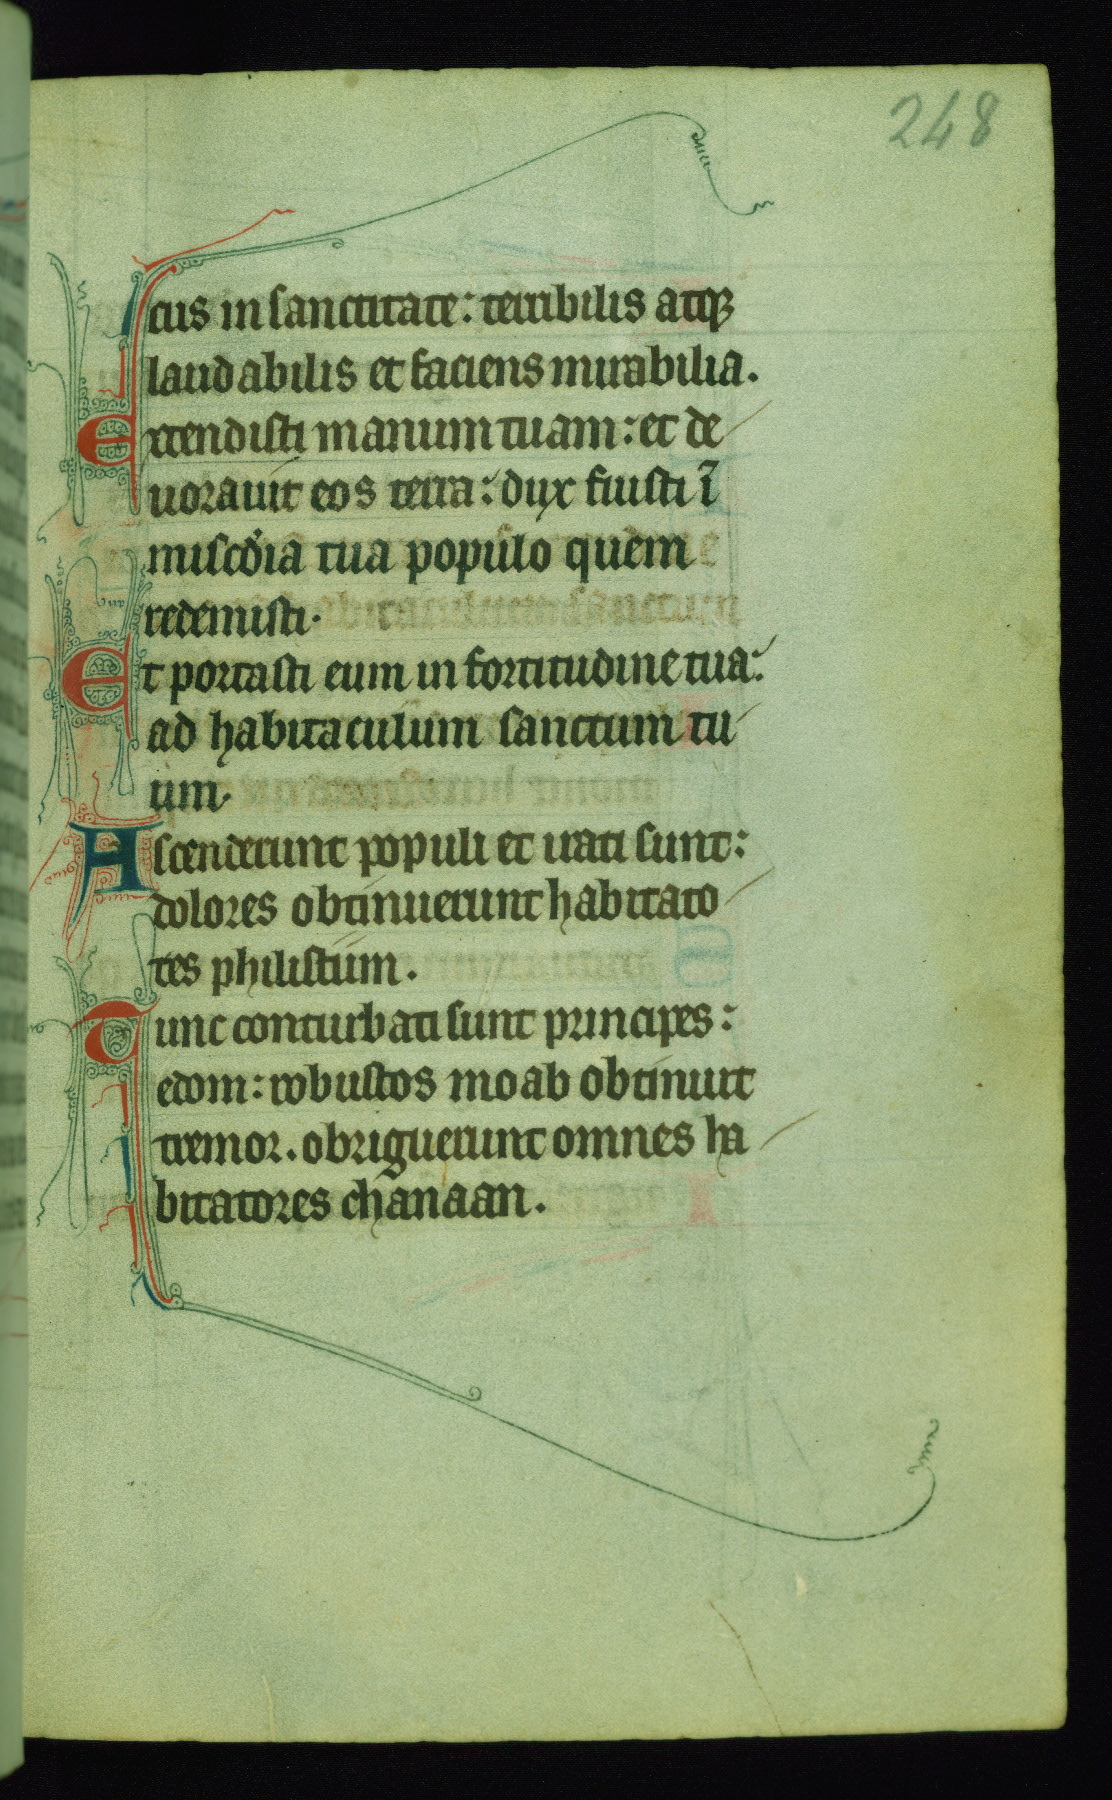 248
cus in sanctitate: terribilis atqꝫ
laudabilis et faciens mirabilia.
Extendisti manum tuam: et de
uorauit eos terra: dux fuisti ī
miscd̓ia tua populo quem
redemisti.
Et portasti eum in fortitudine tua:
ad habitaculum sanctum tu
um.
Ascenderunt populi et irati sunt:
dolores obtinuerunt habitato
res philistiim.
Tunc conturbati sunt principes:
edom: robustos moab obtinuit
tremor. obriguerunt omnes ha
bitatores chanaan.